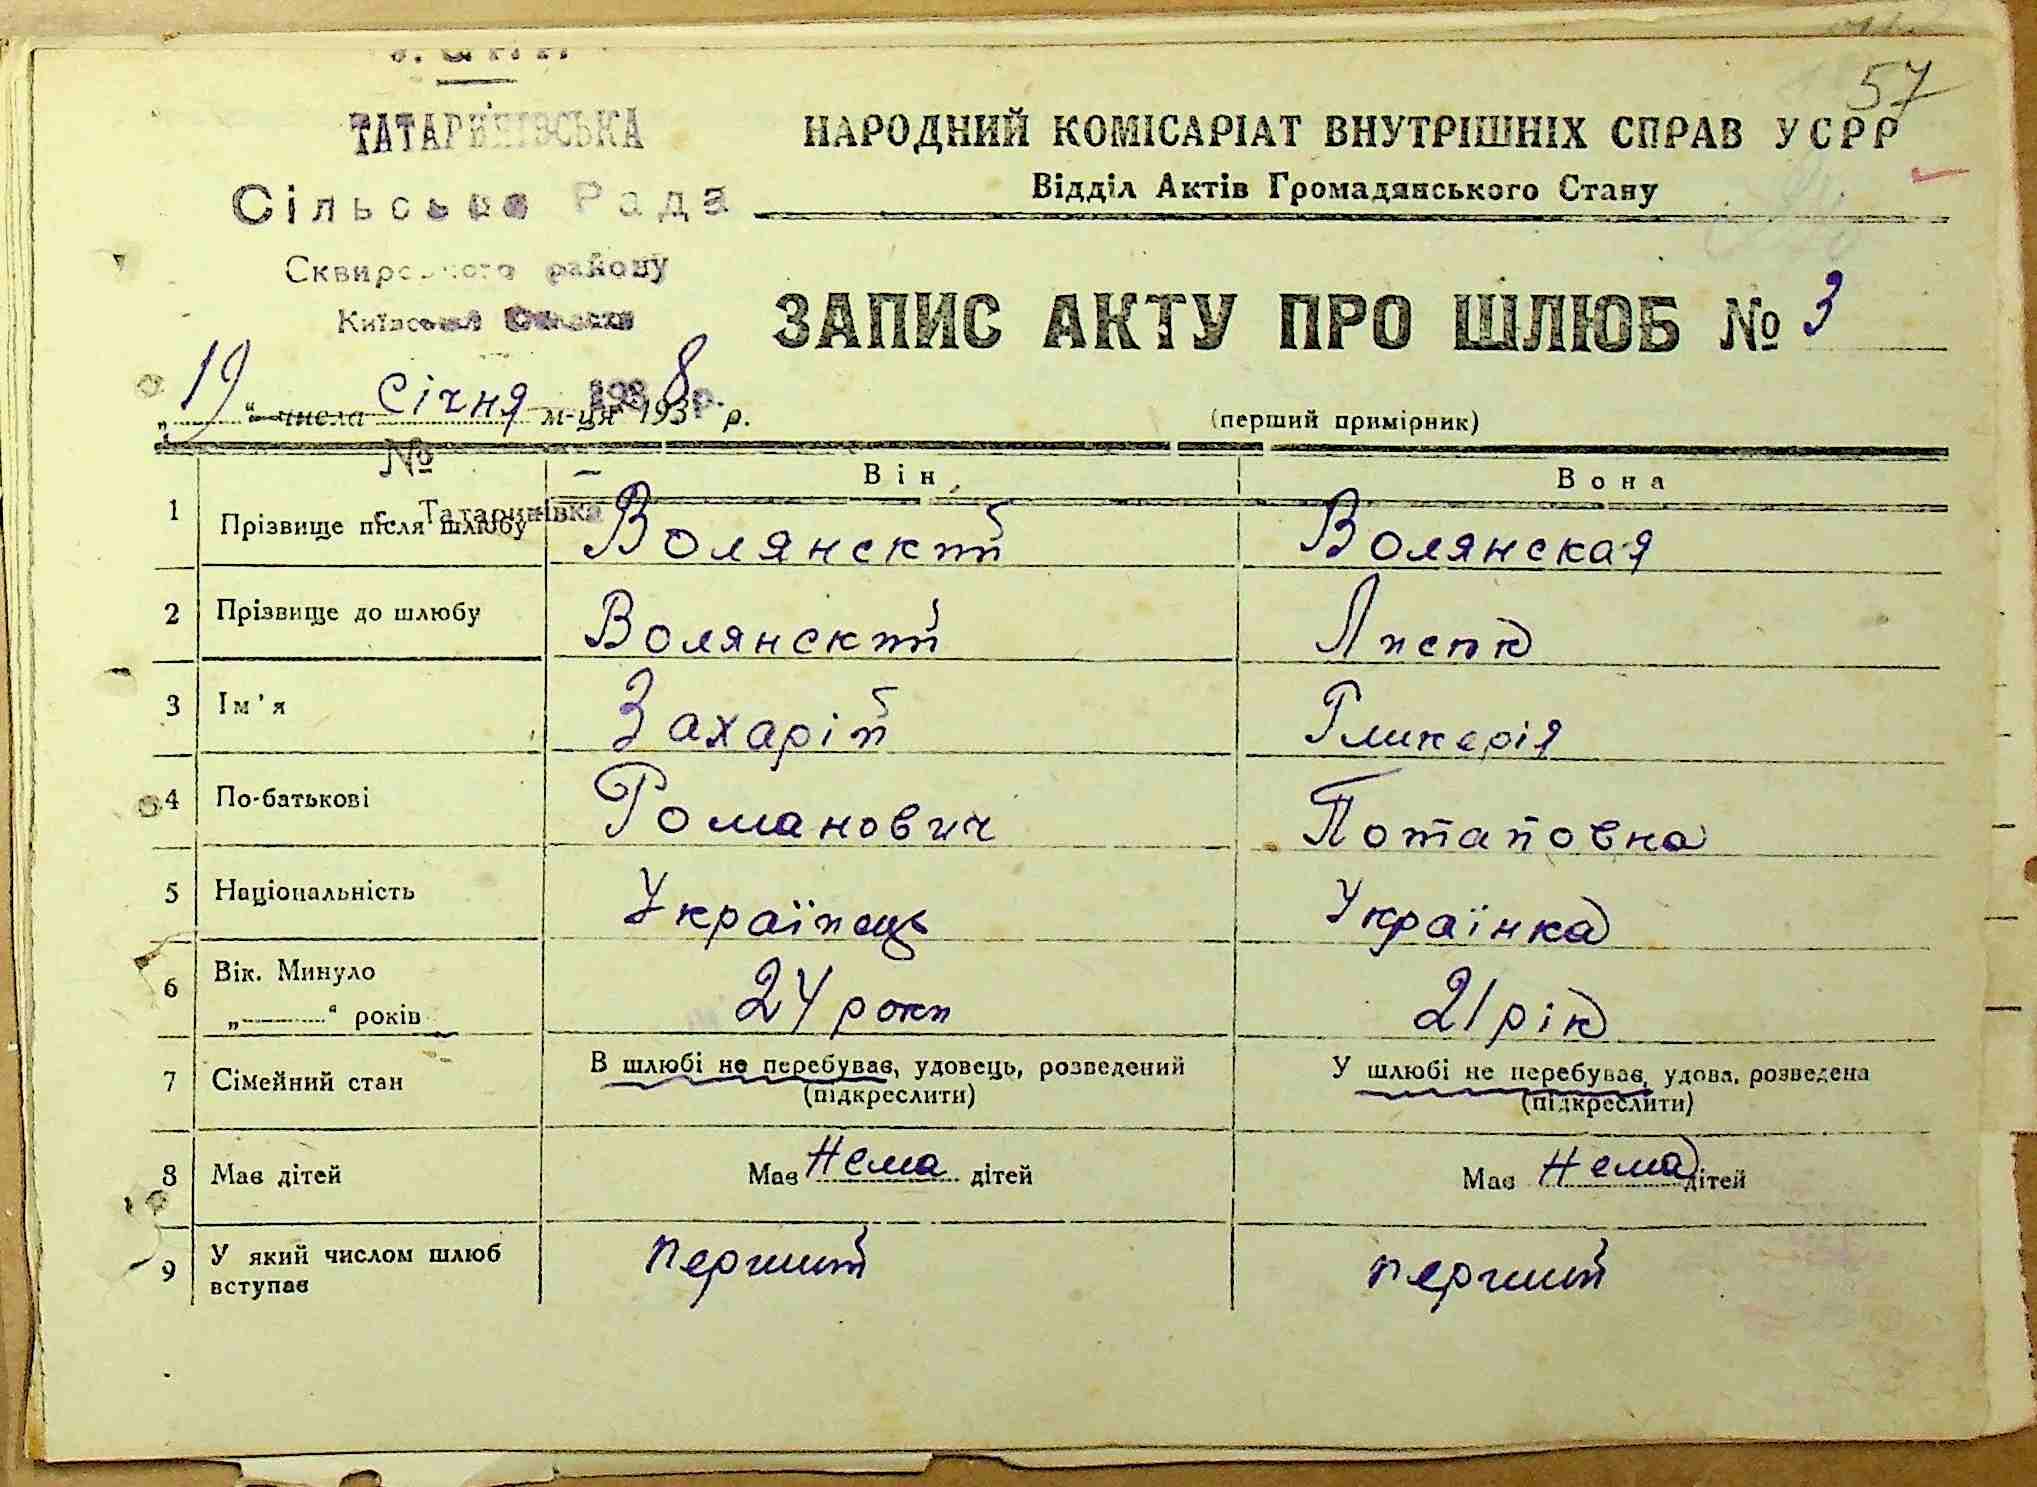 57
ТАТАРИНІВСЬКА
НАРОДНИЙ КОМІСАРІАТ ВНУТРІШНІХ СПРАВ УСРР
Сільська Рада
Відділ Актів Громадянського Стану
Сквирського району
Київської Області
ЗАПИС АКТУ ПРО ШЛЮБ № 3
„19“ числа січня м-ця 1938 р.
(перший примірник)
№
Він
Вона
с. Татаринівка
1 Прізвище після шлюбу Волянский Волянская
2 Прізвище до шлюбу Волянский
3 Ім'я Захарій Гликерія
4 По-батькові Романович Потаповна
5 Національність Українець Українка
6 Вік. Минуло „ “ років 24 роки 21 рік
7 Сімейний стан В шлюбі не перебував, удовець, розведений (підкреслити) У шлюбі не перебував, удова, розведена (підкреслити)
8 Має дітей Має Нема дітей Має Нема дітей
9 У який числом шлюб вступає перший перший